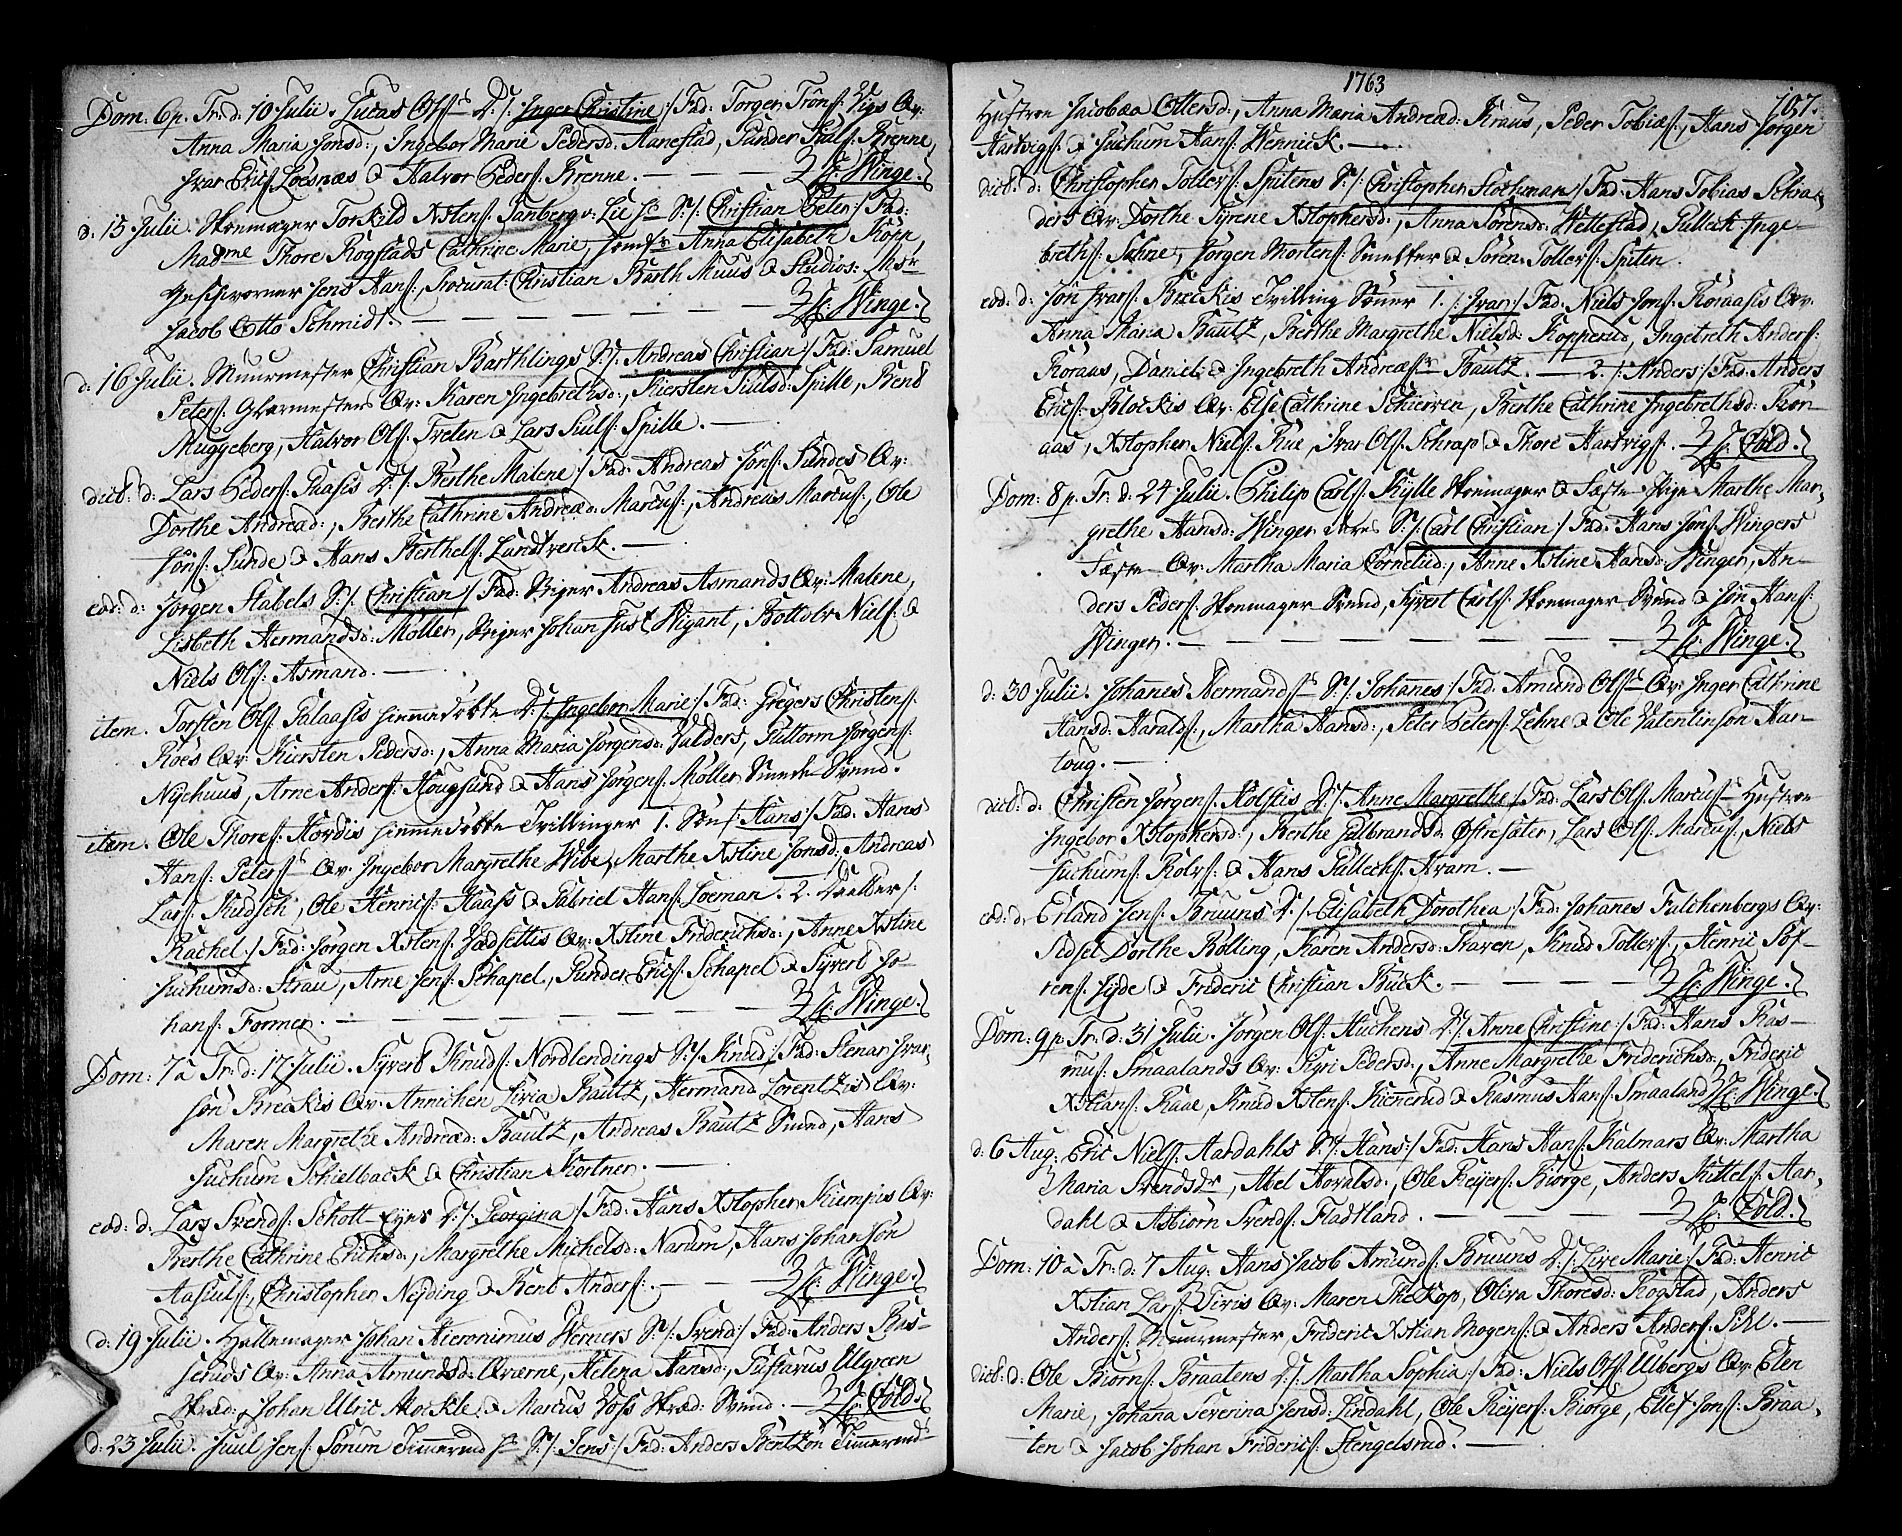 Dom: 6 p. Tr: d: 10 Julii. Lucas Ols: D:/: Inger Christine :/ Fad: Torger Tröns: Vigs Qv:
Anna Maria Jonsd:, Ingebor Marie Pedersd: Aanestad, Gunder Pauls: Brenne,
Ivar Erics: Loesnæs & Halvor Peders: Brenne. — — — H: Winge.
d: 15 Julii. Skoemager Torkild Xstens: Sanberg v: Lie S:/: Christian Peter :/ Fad:
Madme Thore Rogstads Cathrine Marie, Jomfr Anna Elisabeth Kopp,
Jens Hans:, Procurat: Christian Barth Muus & Studios: Msr
Jacob Otto Schmidt. — — — H: Winge.
d: 16 Julii. Muurmester Christian Barthlings S:/: Andreas Christian :/ Fad: Samuel
Peters: Glarmesters Qv: Karen Ingebrethsd:, Kiersten Juulsd: Spille, Bend
Muggeberg, Halvor Ols: Tveten & Lars Juuls: Spille. —
dict: d: Lars Peders: Gaasis D:/: Berthe Malene :/ Fad: Andreas Jons: Sundes Qv:
Dorthe Andread:, Berthe Cathrine Andreæd: Marcus:, Andreas Marcus:, Ole
Jons: Sunde & Hans Berthels: Lundtvenck. —
eod: d: Jørgen Stabels S:/: Christian :/ Fad: Andreas Asmands Qv: Malene,
Lisbeth Hermandsd: Möller, Johan Just Wigant, Niels: &
Niels Ols: Asmand. —
item. Torsten Ols: Galaasis hiemmedøbte D:/: Ingebor Marie :/ Fad: Gregers Christens:
Roes Qv: Kiersten Pedersd:, Anna Maria Jørgensd: Valders, Guttorm Jørgens:
Nyehuus, Arne Anders: Hougsund & Hans Jørgens: Möller Svend.
item. Ole Thores: Hordis hiemmedøbte Tvillinger 1. Søn /: Hans :/ Fad: Hans
Hans: Peters: Qv: Ingebor Margrethe Wibe, Marthe Xstine Jonsd: Andreas
Lars: Kudsch, Ole Henrics: Haass & Gabriel Hans: Loeman. 2. Datter /:
Rachel :/ Fad: Jørgen Xstens: Qv: Xstine Friderichsd:, Anne Xstine
Juchumsd: Strau, Arne Jens: Schapel, Gunder Erics: Schapel & Syvert Jo-
hans: Former. — — — H: Winge.
Dom: 7 a Tr: d: 17 Julii. Syvert Knuds: Nordlendings S:/: Knud :/ Fad: Stenar Ivar-
søn Breckis Qv: Annichen Livia Bautz, Hermand Lorentzis Qv:
Maren Margrethe Andreæd: Bautz, Andreas Bautz Svend, Hans
Juchum Schielback & Christian Kortner. —
eod: d: Lars Svends: Schott-Eyes D:/: Georgina :/ Fad: Hans Xstopher Kiempis Qv:
Berthe Cathrine Erichsd:, Margrethe Michelsd: Narum, Hans Johansøn
Aasculs:, Christopher Neyding & Bent Anders: — H: Winge.
d: 19 Julii. Johan Hieronimus Werners S:/: Svend :/ Fad: Anders Bus-
seruds Qv: Anna Amundsd: Qværne, Helena Hansd:, Gustavus Ulgreen
Skræd:, Johan Ulric Morkle & Marcus Voss Skræd: Svend. — H: Cold.
d: 23 Julii. Juul Jens: Sørum Timmermd S:/: Jens :/ Fad: Anders Bentzøn Timmermd
1763
107.
Hustroe Jacobæa Ottersd:, Anna Maria Andreæd: Kraus, Peder Tobiæs:, Hans Jørgen
Hartvigs: & Juchum Hans: Wennick. —
dict: d: Christopher Tollers: Spitens S:/: Christopher Slochman :/ Fad: Hans Tobias Schra-
ders Qv: Dorthe Syrene Xstophersd:, Anna Sörensd: Hettestad, Gullick Inge-
breths: Sahne, Jørgen Mortens: & Søren Tollers: Spiten.
eod: d: Jøn Ivars: Breckis Tvilling Sønner 1. /: Ivar :/ Fad: Niels Jons: Koraasis Qv:
Anna Maria Bautz, Berthe Margrethe Nielsd: Kopperud, Ingebreth Anders:
Koraas, Daniel & Ingebreth Andreæs: Bautz. — 2. /: Anders :/ Fad: Anders
Erics: Blockis Qv: Else Cathrine Schierven, Berthe Cathrine Ingebrethsd: Kor-
aas, Xstopher Niels: Rue, Ivar Ols: Schrap & Thore Hartvigs: H: Cold.
Dom: 8 p. Tr: d: 24 Julii. Philip Carls: Kylle Skoemager & Fæste Pige Marthe Mar-
grethe Hansd: Winger deres S:/: Carl Christian :/ Fad: Hans Jons: Wingers
Fæste Qv: Martha Maria Corneliid:, Anne Xstine Hansd: Winger, An-
ders Peders: Skoemager Svend, Syvert Carls: Skoemager Svend & Jøn Hans:
Winger. — — — H: Winge.
d: 30 Julii. Johanes Hermands: S:/: Johannes :/ Fad: Amund Ols: Qv: Inger Cathrine
Hansd: Haralds:, Martha Hansd:, Peter Peters: Lehne & Ole Valentinsøn Har-
toug. —
dict: d: Christen Jørgens: Kolskis D:/: Anne Margrethe :/ Fad: Lars Ols: Marcus: Hustroe
Ingebor Xstophersd:, Berthe Gulbrandsd: Ostresæter, Lars Ols: Marcus:, Niels
Juchums: Rolvs: & Hans Gullichs: Hvam. —
eod: d: Erland Jens: Bruuns D:/: Elisabeth Dorothea :/ Fad: Johanes Falchenbergs Qv:
Sidsel Dorthe Bolling, Karen Andersd: Raven, Knud Tollers:, Henric Søf-
rens: Jyde & Frideric Christian Buck. — — — H: Winge.
Dom: 9 p. Tr: d: 31 Julii. Jørgen Ols: Huchens D:/: Anne Christine :/ Fad: Hans Ras-
mus: Smaalands Qv: Kyri Pedersd:, Anne Margrethe Friderichsd:, Frideric
Xstians: Raae, Knud Xstens: Kiønerud & Rasmus Hans: Smaaland H: Winge.
d: 6 Aug: Eric Niels: Aardahls S:/: Hans :/ Fad: Hans Hans: Kalmars Qv: Martha
Maria Svendsdr, Abel Hovalsd:, Ole Reyers: Biørge, Anders Kittels: Aar-
dahl & Asbiørn Svends: Fladtland. — — H: Cold.
Dom: 10 a Tr: d: 7 Aug: Hans Jacob Amunds: Bruuns D:/: Live Marie :/ Fad: Henric
Xstian Lars: Qv: Maren Kop, Oliva Thoresd: Rogstad, Anders
Anders: Muurmester, Frideric Xstian Mogens: & Anders Anders: Pihl. —
dict: d: Ole Biørns: Braatens D:/: Martha Sophia :/ Fad: Niels Ols: Ulbergs Qv: Elen
Marie, Johana Severina Jensd: Lindahl, Ole Reyers: Biørge, Ellef Jons: Braa-
ten & Jacob Johan Friderics: Stengelsrud. —